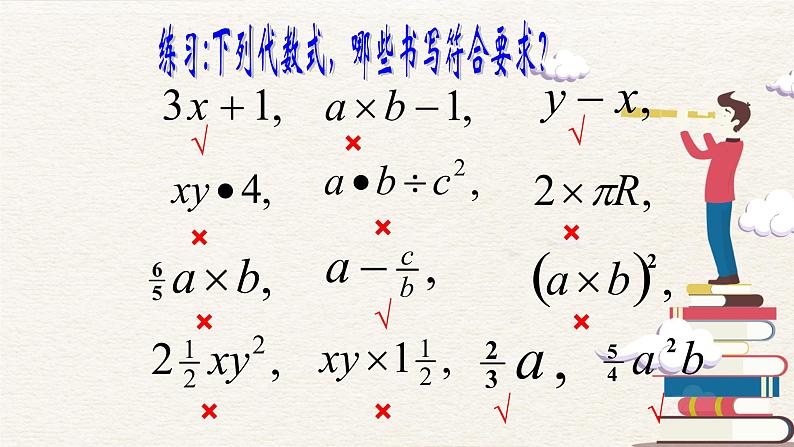 练习:下列代数式，哪些书写符合要求?
3x+1, a×b−1, y−x,
√ × √
xy•4, a•b÷c², 2×πR,
× × ×
6/5 a×b, a−c/b, (a×b)²,
× √ ×
2 1/2 xy², xy×1 1/2, 2/3 a, 5/4 a²b
× × √ √